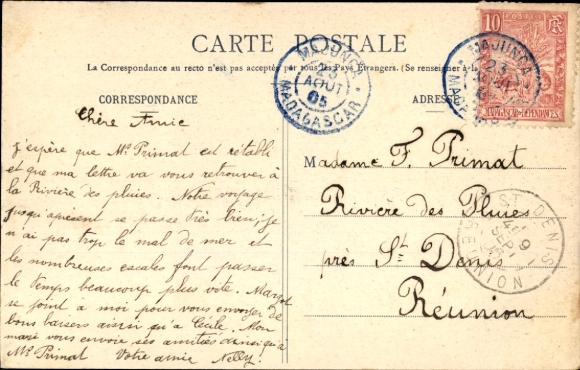 CARTE POSTALE
La Correspondance au recto n'est pas acceptée par tous les Pays Étrangers. (Se renseigner à la
CORRESPONDANCE
ADRES
10
POSTES
MADAGASCAR-DÉPENDANCES
MAJUNGA
23
AOUT
05
MADAGASCAR
MAJUNGA
23
Chère Amie
J'espère que Mr Primat est rétabli
et que ma lettre va vous retrouver à
la Rivière des pluies. Notre voyage
jusqu'àprésent se passe très bien, je
n'ai pas trop le mal de mer et
les nombreuses escales font passer
le temps beaucoup plus vite. Margot
se joint à moi pour vous envoyer de
bons baisers ainsi qu'à Cécile. Mon
mari vous envoie ses amitiés ainsi qu'à
Mr Primat Votre amie Nelly!
Madame F. Primat
Rivière des Pluies
près St Denis
Réunion
ST DENIS
REUNION